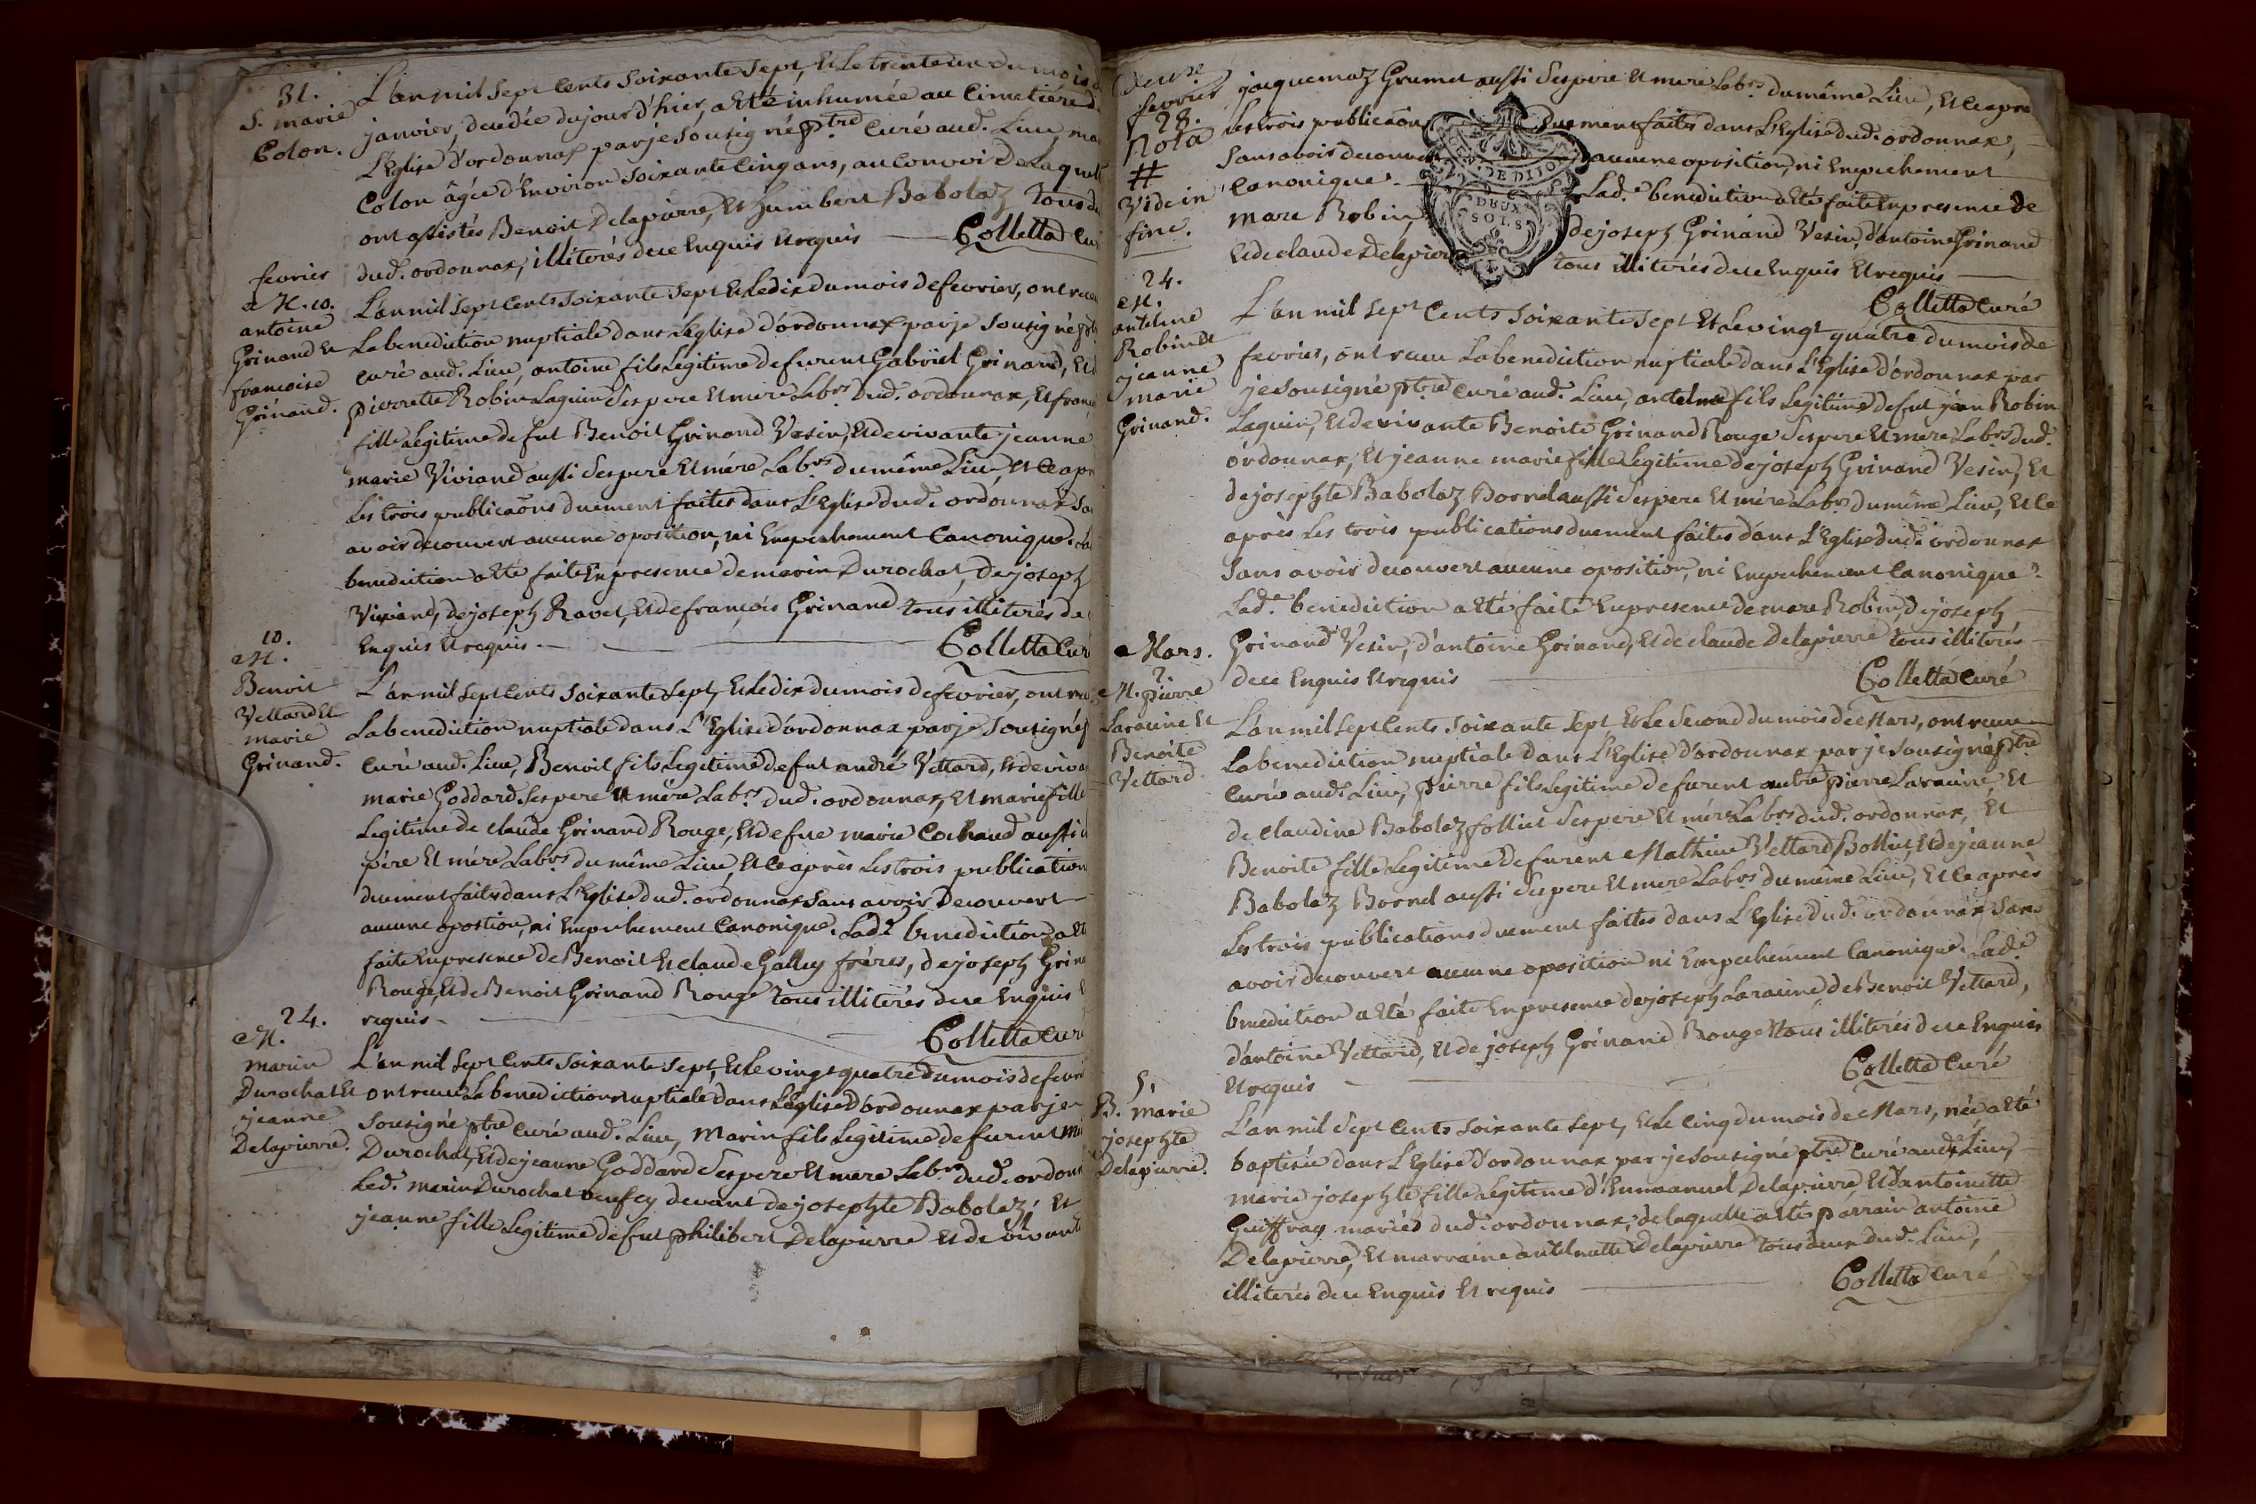 31.
S. marie
Colon.
L'an mil sept cents soixante sept, et le trente un du mois
janvier, decedée du jour d'hier, a eté inhumée au Cimetiére d
L'Eglise d'ordonnax par je sousigné ptre Curé aud. Lieu, ma
Colon âgée d'Environ soixante Cinq ans, au Convoi De Laquell
ont assistés Benoit Delapierre, et humbert Babolaz tous d
dud. ordonnax, illiterés de ce Enquis et requis — Colletta Cu
fevrier
M. 10.
antoine
Grinand et
francoise
Grinand.
L'an mil sept cents soixante sept et le dix du mois de fevrier, ont receu
La benediction nuptiale dans L'eglise d'ordonnax par je sousigné pt
curé aud. Lieu, antoine fils Legitime de furent Gabriel Grinand, et d
pierrette Robin Laguin ses pere et mere Labrs dud. ordonnax, et franc
fille Legitime de fut Benoit Grinand Vesin, et de vivante jeanne
marie Viviand aussi ses pere et mére Labrs du même Lieu, et Ce apr
Les trois publicaõns duement faites dans L'Eglise dud. ordonnax sa
avoir decouvert aucune oposition, ni Empechement Canonique. La
benediction a eté faite En presence de marin Durochat, de joseph
Viviand, de joseph Ravet, et de francois Grinand tous illiterés de
Enquis et requis. — Colletta Cur
10.
M.
Benoit
Vettard et
marie
Grinand.
L'an mil sept cents soixante sept, et le dix du mois de fevrier, ont rec
La benediction nuptiale dans L'Eglise d'ordonnax par je sousigné p
Curé aud. Lieu, Benoit fils Legitime de fut andré Vettard, et de viva
marie Goddard ses pere et mére Labrs dud. ordonnax, et marie fille
Legitime de claude Grinand Rouge, et de fue marie Cochand aussi
pére et mére Labrs du même Lieu, et Ce après Les trois publication
duement faites dans L'Eglise dud. ordonnax sans avoir Decouvert
aucune opostion, ni Empechement Canonique. Lade benediction a et
faite En presence de Benoit et claude Galley fréres, de joseph Grina
Rouge, et de Benoit Grinand Rouge tous illiterés de ce Enquis
requis. — Colletta cur
24.
M.
marin
Durochat et
jeanne
Delapierre.
L'an mil sept cents soixante sept, et le vingt quatre du mois de fevri
ont receu La benediction nuptiale dans L'eglise d'ordonnax par je
sousigné ptre Curé aud. Lieu, Marin fils Legitime de furent M
Durochat, et de jeanne Goddard ses pere et mere Labrs dud. ordonn
Led. marin Durochat veuf cy devant de josephte Babolaz; et
jeanne fille Legitime de fut philibert Delapierre et de vivant
fevrier
28.
Nota
#
Vide in
fine.
jaquemaz Grumet aussi ses pere et mere Labrs du même Lieu, et Ce apre
Les trois publicaõns duement faites dans L'Eglise dud. ordonnax,
sans avoir decouvert aucune oposition, ni Empechement
Canonique. Lad.e benediction a eté faite En presence de
Marc Robin, de joseph Grinand Vesin, d'antoine Grinand
et de claude Delapierre tous illiterés de ce Enquis et requis —
Colletta Curé
GEN. DE DIJON
DEUX
SOLS
24.
M.
antelme
Robin et
jeanne
marie
Grinand.
L'an mil sept cents soixante sept et le vingt quatre du mois de
fevrier, ont receu La benediction nuptiale dans L'Eglise d'ordonnax par
je sousigné ptre Curé aud. Lieu, antelme fils Legitime de fut jean Robin
Laguin, et de vivante Benoite Grinand Rouge ses pere et mere Labrs dud.
ordonnax, et jeanne marie fille Legitime de joseph Grinand Vesin, et
de josephte Babolaz Bornel aussi ses pere et mére Labrs du même Lieu, et Ce
après Les trois publications duement faites dans L'Eglise dud. ordonnax
sans avoir decouvert aucune oposition, ni Empechement Canonique.
Lade benediction a eté faite En presence de marc Robin, de joseph
Grinand Vesin, d'antoine Grinand, et de claude Delapierre tous illiterés
de ce Enquis et requis — Colletta Curé
Mars.
2.
M. pierre
Laracine et
Benoite
Vettard.
L'an mil sept Cents soixante sept, et Le second du mois de Mars, ont receu
La benediction nuptiale dans L'Eglise d'ordonnax par je sousigné ptre
Curé aud. Lieu, pierre fils Legitime de furent autre pierre Laracine, et
de claudine Babolaz folliet ses pere et mére Labrs dud. ordonnax, et
Benoite fille Legitime de furent Mathieu Vettard Bolliet, et de jeanne
Babolaz Bornel aussi ses pere et mere Labrs du même Lieu, et Ce après
Les trois publications duement faites dans L'Eglise dud. ordonnax sans
avoir decouvert aucune oposition ni Empechement Canonique. Lad.e
benediction a eté faite En presence de joseph Laracine de Benoit Vettard,
d'antoine Vettard, et de joseph Grinand Rouge tous illiterés de ce Enquis
et requis — Colletta Curé
5.
B. marie
josephte
Delapierre.
L'an mil sept Cents soixante sept, et Le cinq du mois de Mars, née a eté
baptisée dans L'Eglise d'ordonnax par je sousigné ptre Curé aud. Lieu,
marie josephte fille Legitime d'Emmanuel Delapierre, et d'antoinette
Guiffray mariés dud. ordonnax, de laquelle a eté parrain antoine
Delapierre, et marraine antelmette Delapierre tous deux dud. Lieu,
illiterés de ce Enquis et requis — Colletta Curé